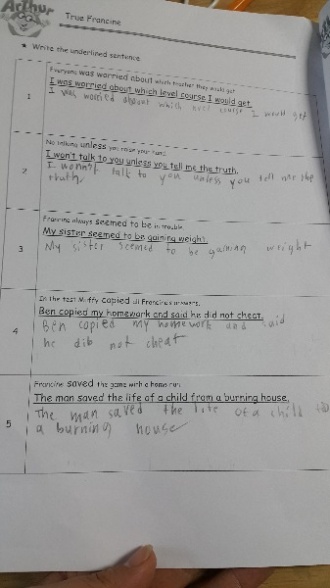 Arthur
True Francine
★ Write the underlined sentence.
1
Everyone was worried about which teacher they would get.
I was worried about which level course I would get.
I was worried aboout which level course I would get
2
No talking unless you raise your hand.
I won't talk to you unless you tell me the truth.
I wonn't talk to you unless you tell me the
truth.
3
Francine always seemed to be in trouble.
My sister seemed to be gaining weight.
My sister seemed to be gaining wright
4
In the test Muffy copied all Francine's answers.
Ben copied my homework and said he did not cheat.
Ben copied my homework and said
he dib not cheat
5
Francine saved the game with a home run.
The man saved the life of a child from a burning house.
The man saved the life of a child
a burning house